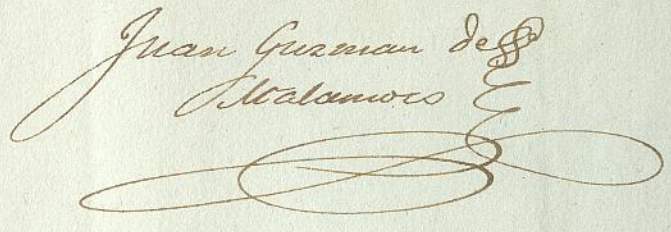 Juan Guzman de
Malamors